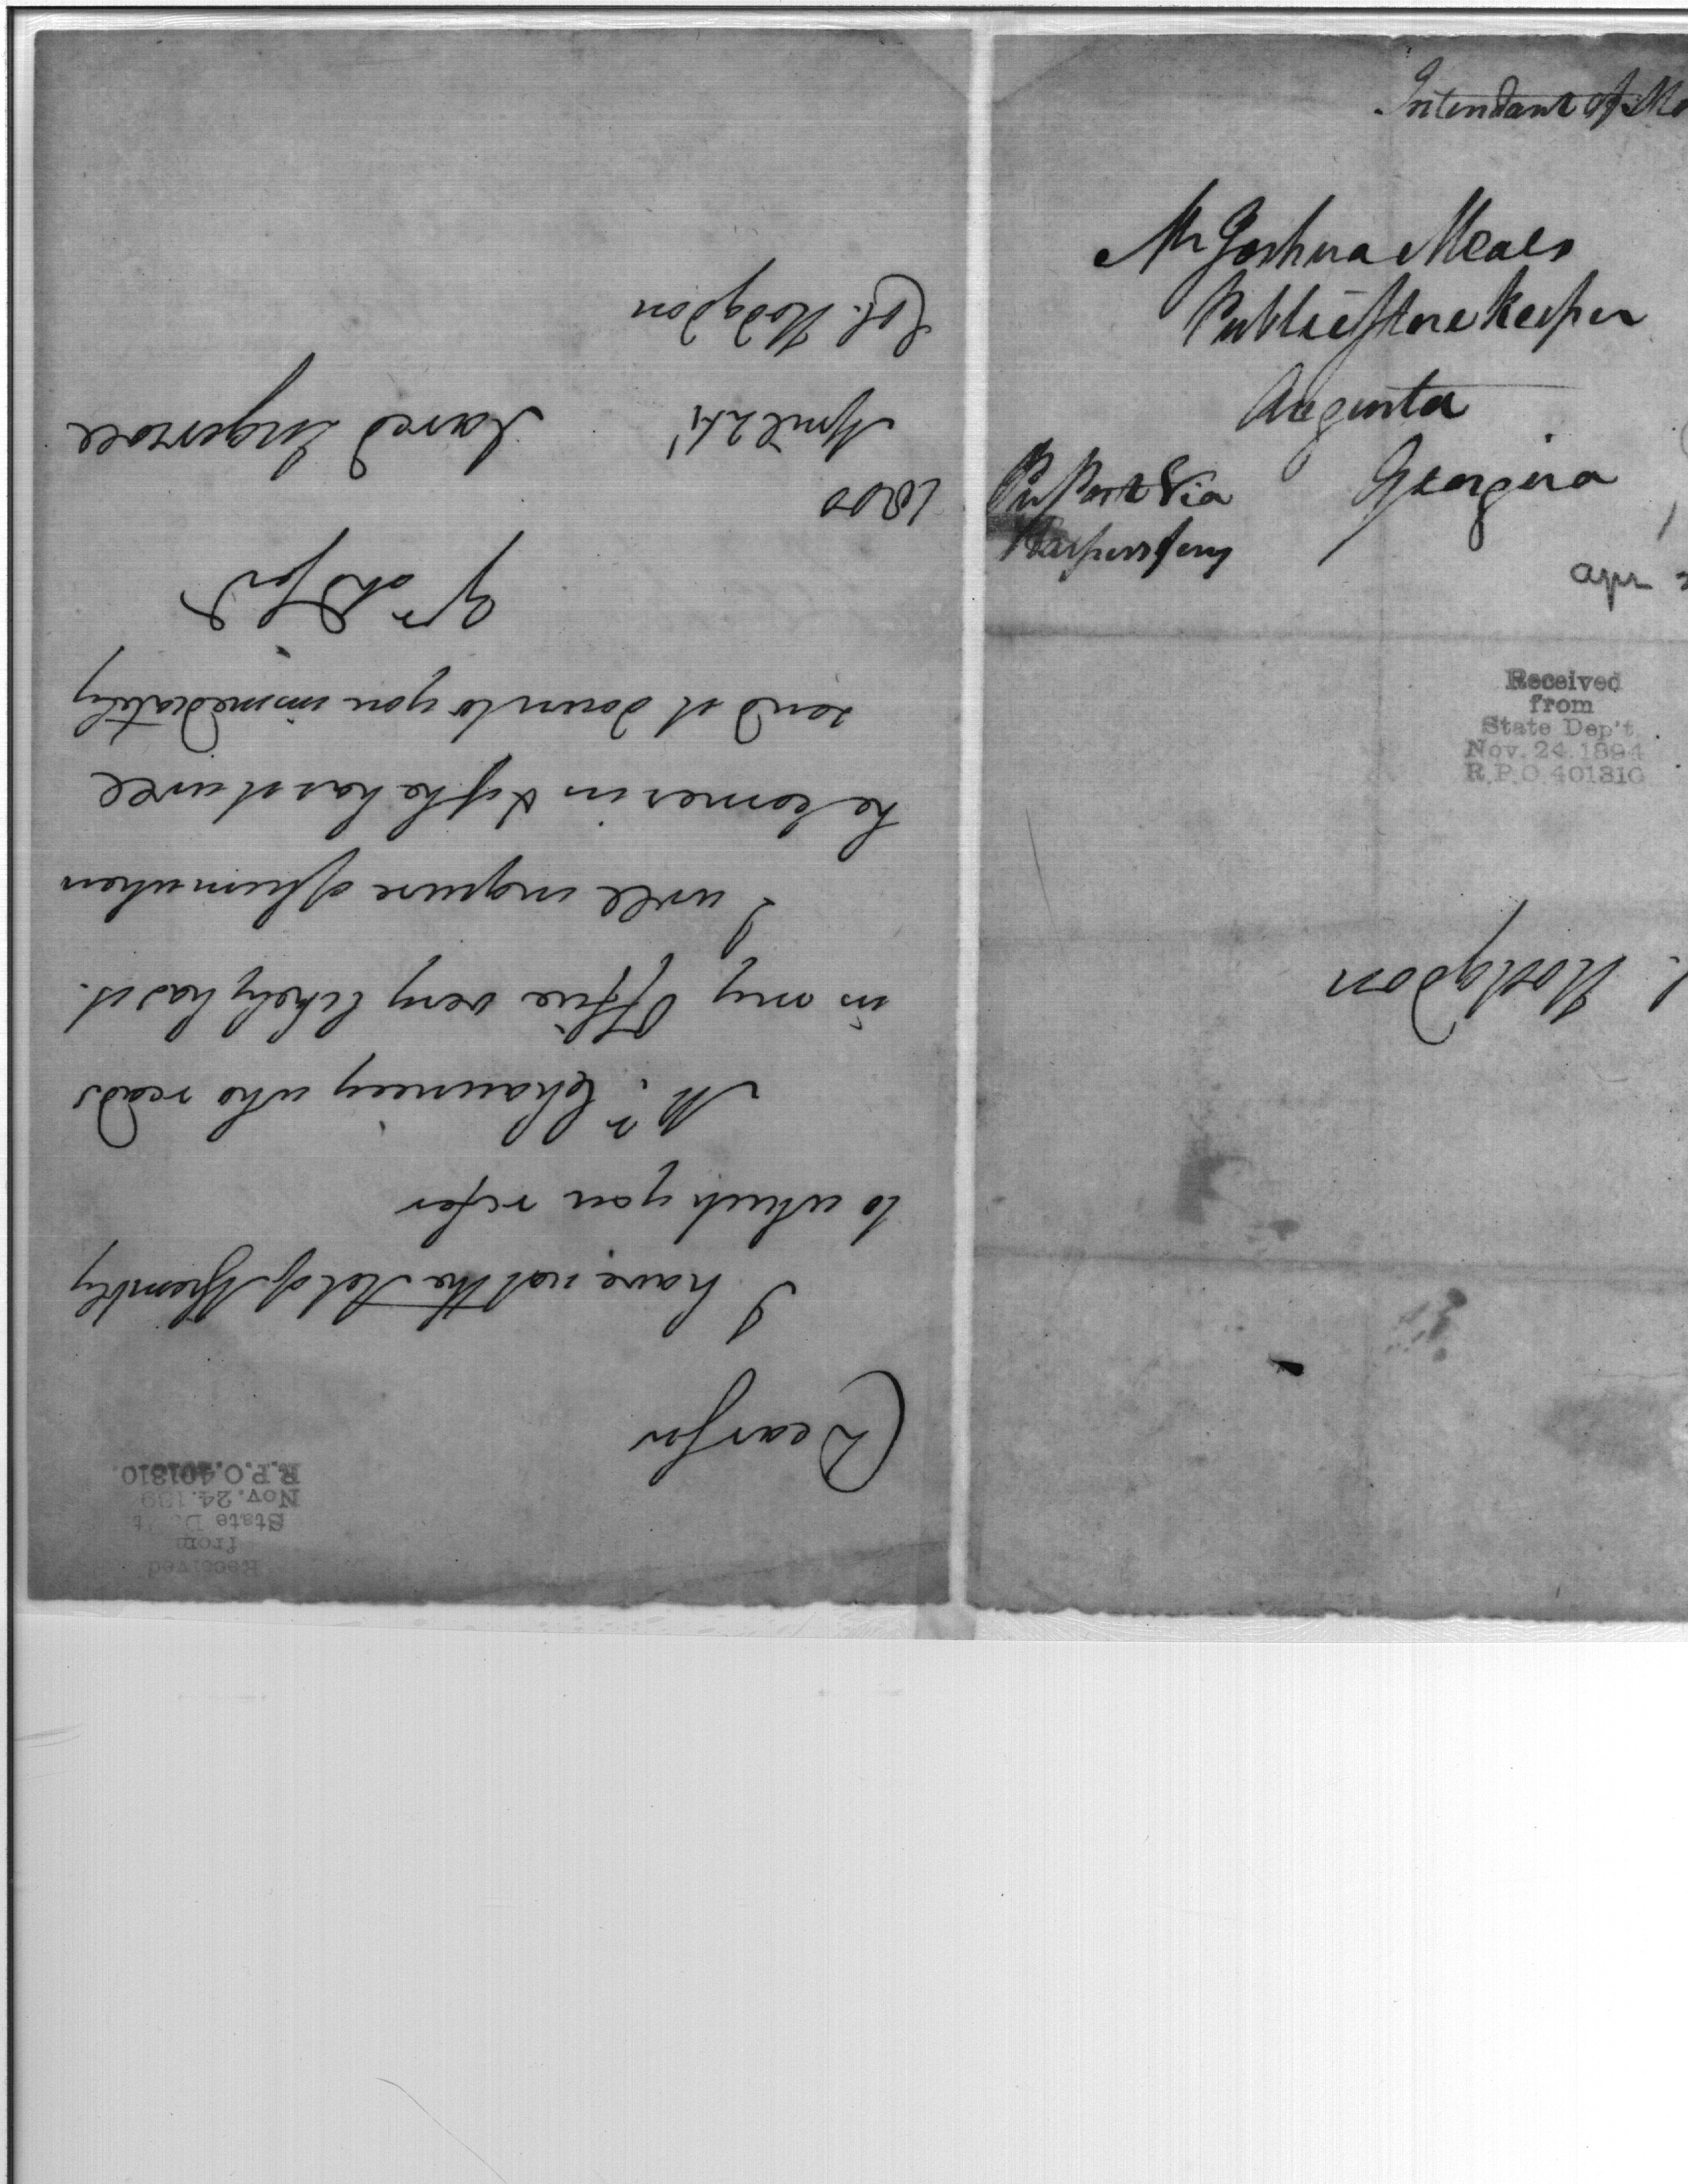 Received
from
State Dep't
Nov. 24. 189
R.P.O. 401310.
Dear Sir
I have not the Act of Assembly
to which you refer
Mr. Chauncey who reads
in my Office very likely has it.
I will inquire of him when
he comes in & if he has it will
send it down to you immediately
Yr ob Svt
Jared Ingersoll
1800
April 24
Col. Hodgdon
Intendant of
Mr Joshua Meals
Public Store Keeper
Augusta
Georgia
Pr Post Via
Harpers ferry
Apr
Received
from
State Dep't
Nov. 24. 1894
R.P.O. 401310
Hodgdon